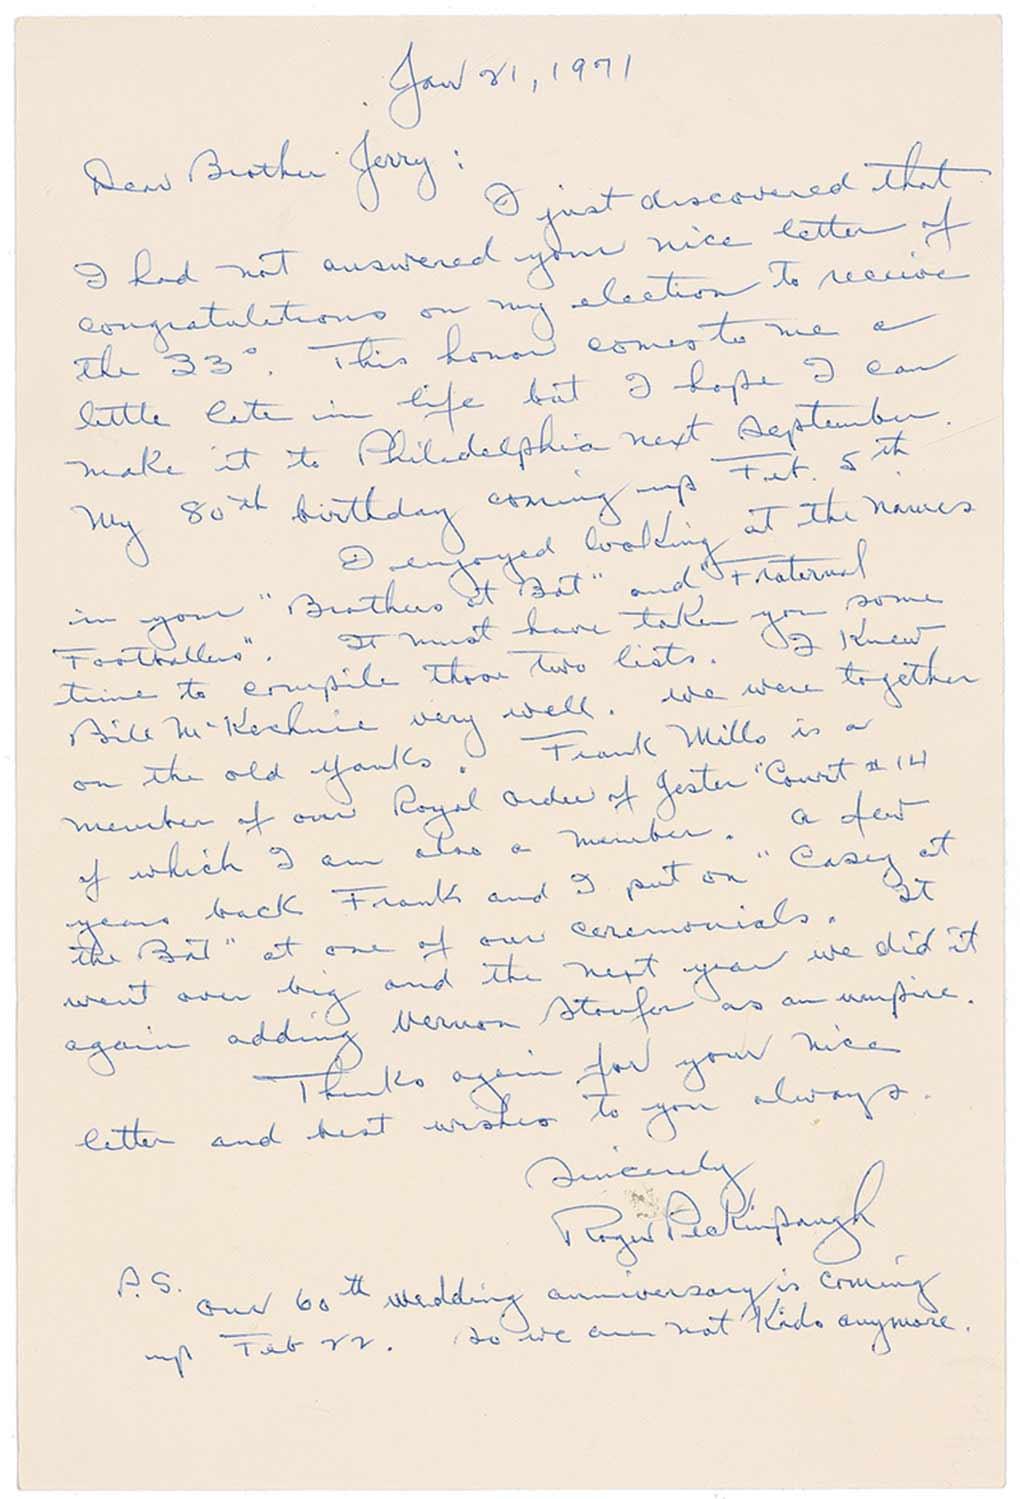 Jan 21, 1971
Dear Brother Jerry:
I just discovered that
I had not answered your nice letter of
congratulations on my election to receive
the 33°. This honor comes to me a
little late in life but I hope I can
make it to Philadelphia next September.
My 80th birthday coming up Feb. 5th.
I enjoyed looking at the names
in your "Brothers at Bat" and "Fraternal
Footballers". It must have taken you some
time to compile those two lists. I knew
Bill McKechnie very well. We were together
on the old Yanks. Frank Mills is a
member of our Royal Order of Jester "Court #14
of which I am also a member. A few
years back Frank and I put on "Casey at
the Bat" at one of our ceremonials. It
went over big and the next year we did it
again adding Vernon Stoufer as an umpire.
Thanks again for your nice
letter and best wishes to you always.
Sincerely
Roger Peckinpaugh
P.S. Our 60th wedding anniversary is coming
up Feb 22. So we are not kids anymore.